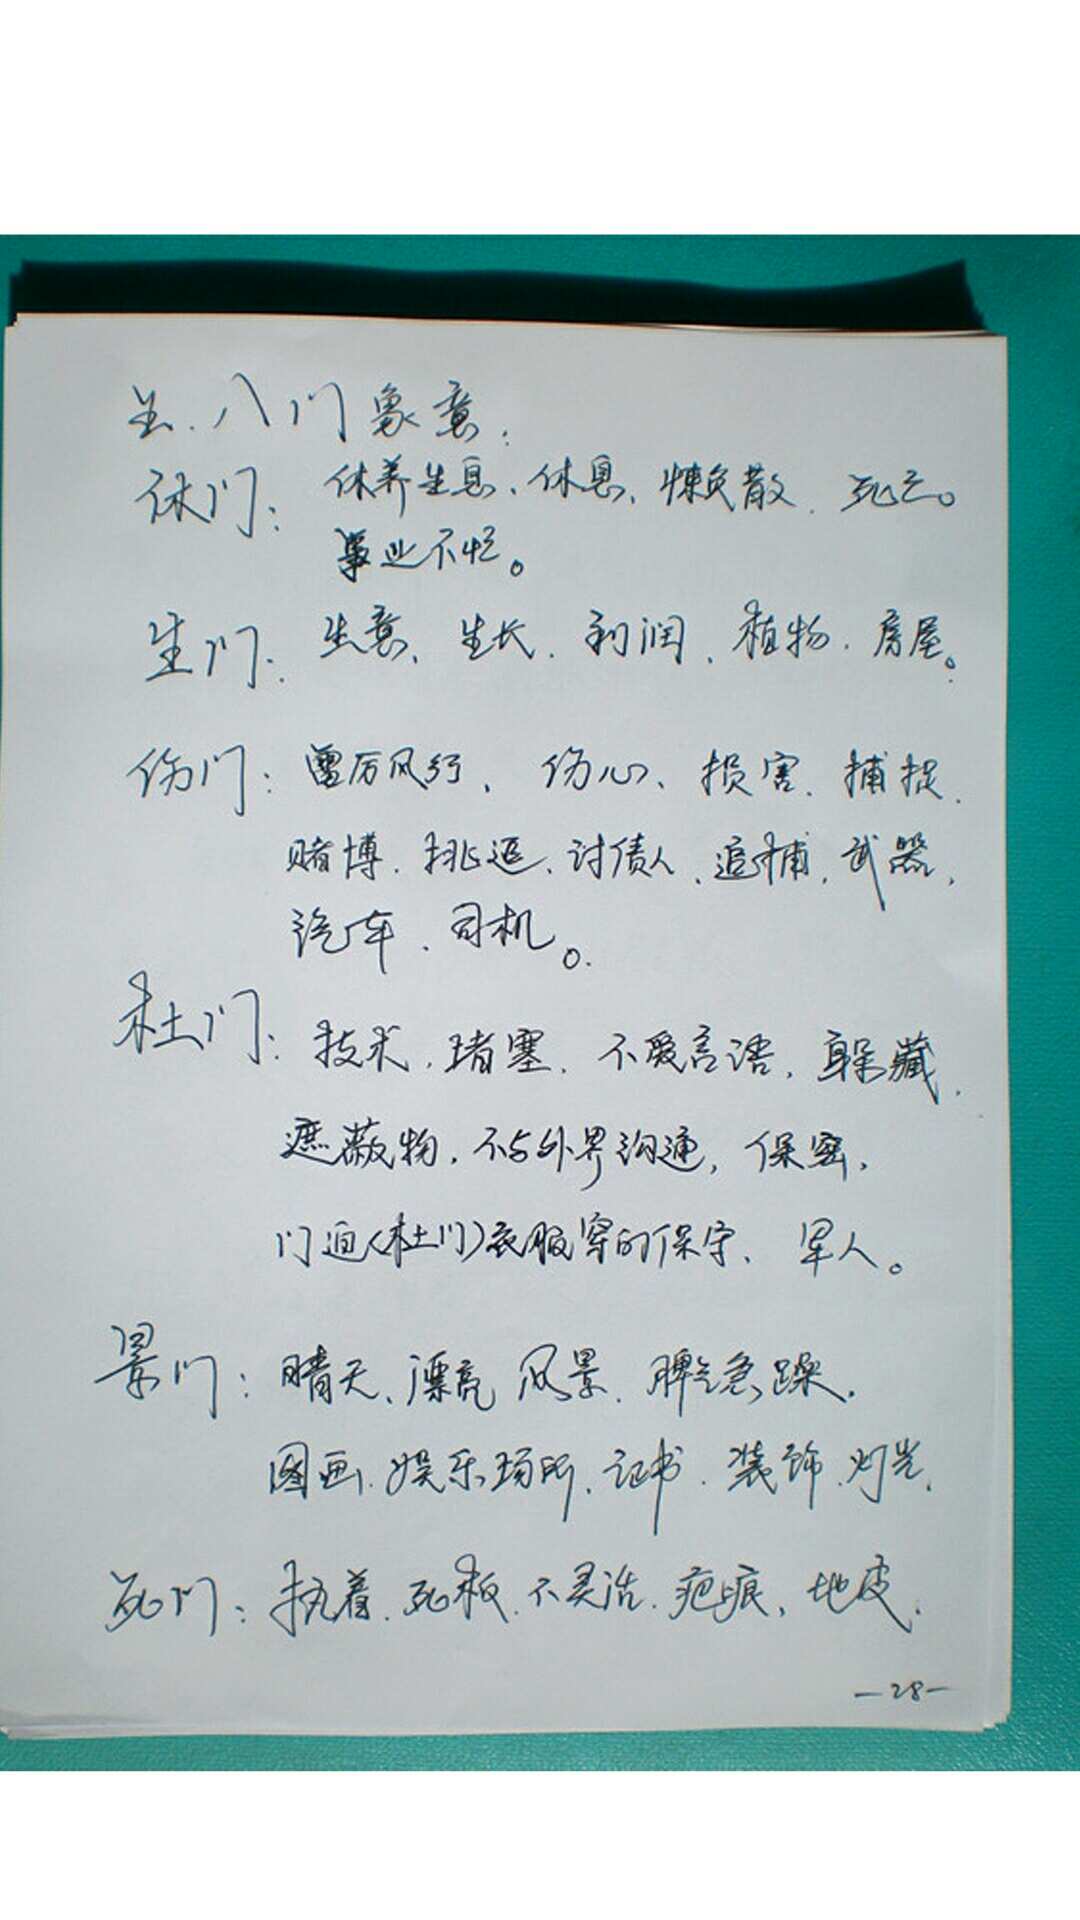 五、八门象意:
休门: 休养生息、休息、懒散、死亡。
事业不忙。
生门: 生意、生长、利润、植物、房屋。
伤门: 雷厉风行、伤心、损害、捕捉、
赌博、挑逗、讨债人、追捕、武器、
汽车、司机。
杜门: 技术、堵塞、不爱言语、躲藏、
遮蔽物、不与外界沟通、保密、
门迫(杜门)衣服穿的保守、军人。
景门: 晴天、漂亮 风景、脾气急躁、
图画、娱乐场所、证书、装饰、灯光、
死门: 执着、死板、不灵活、疤痕、地皮、
-28-